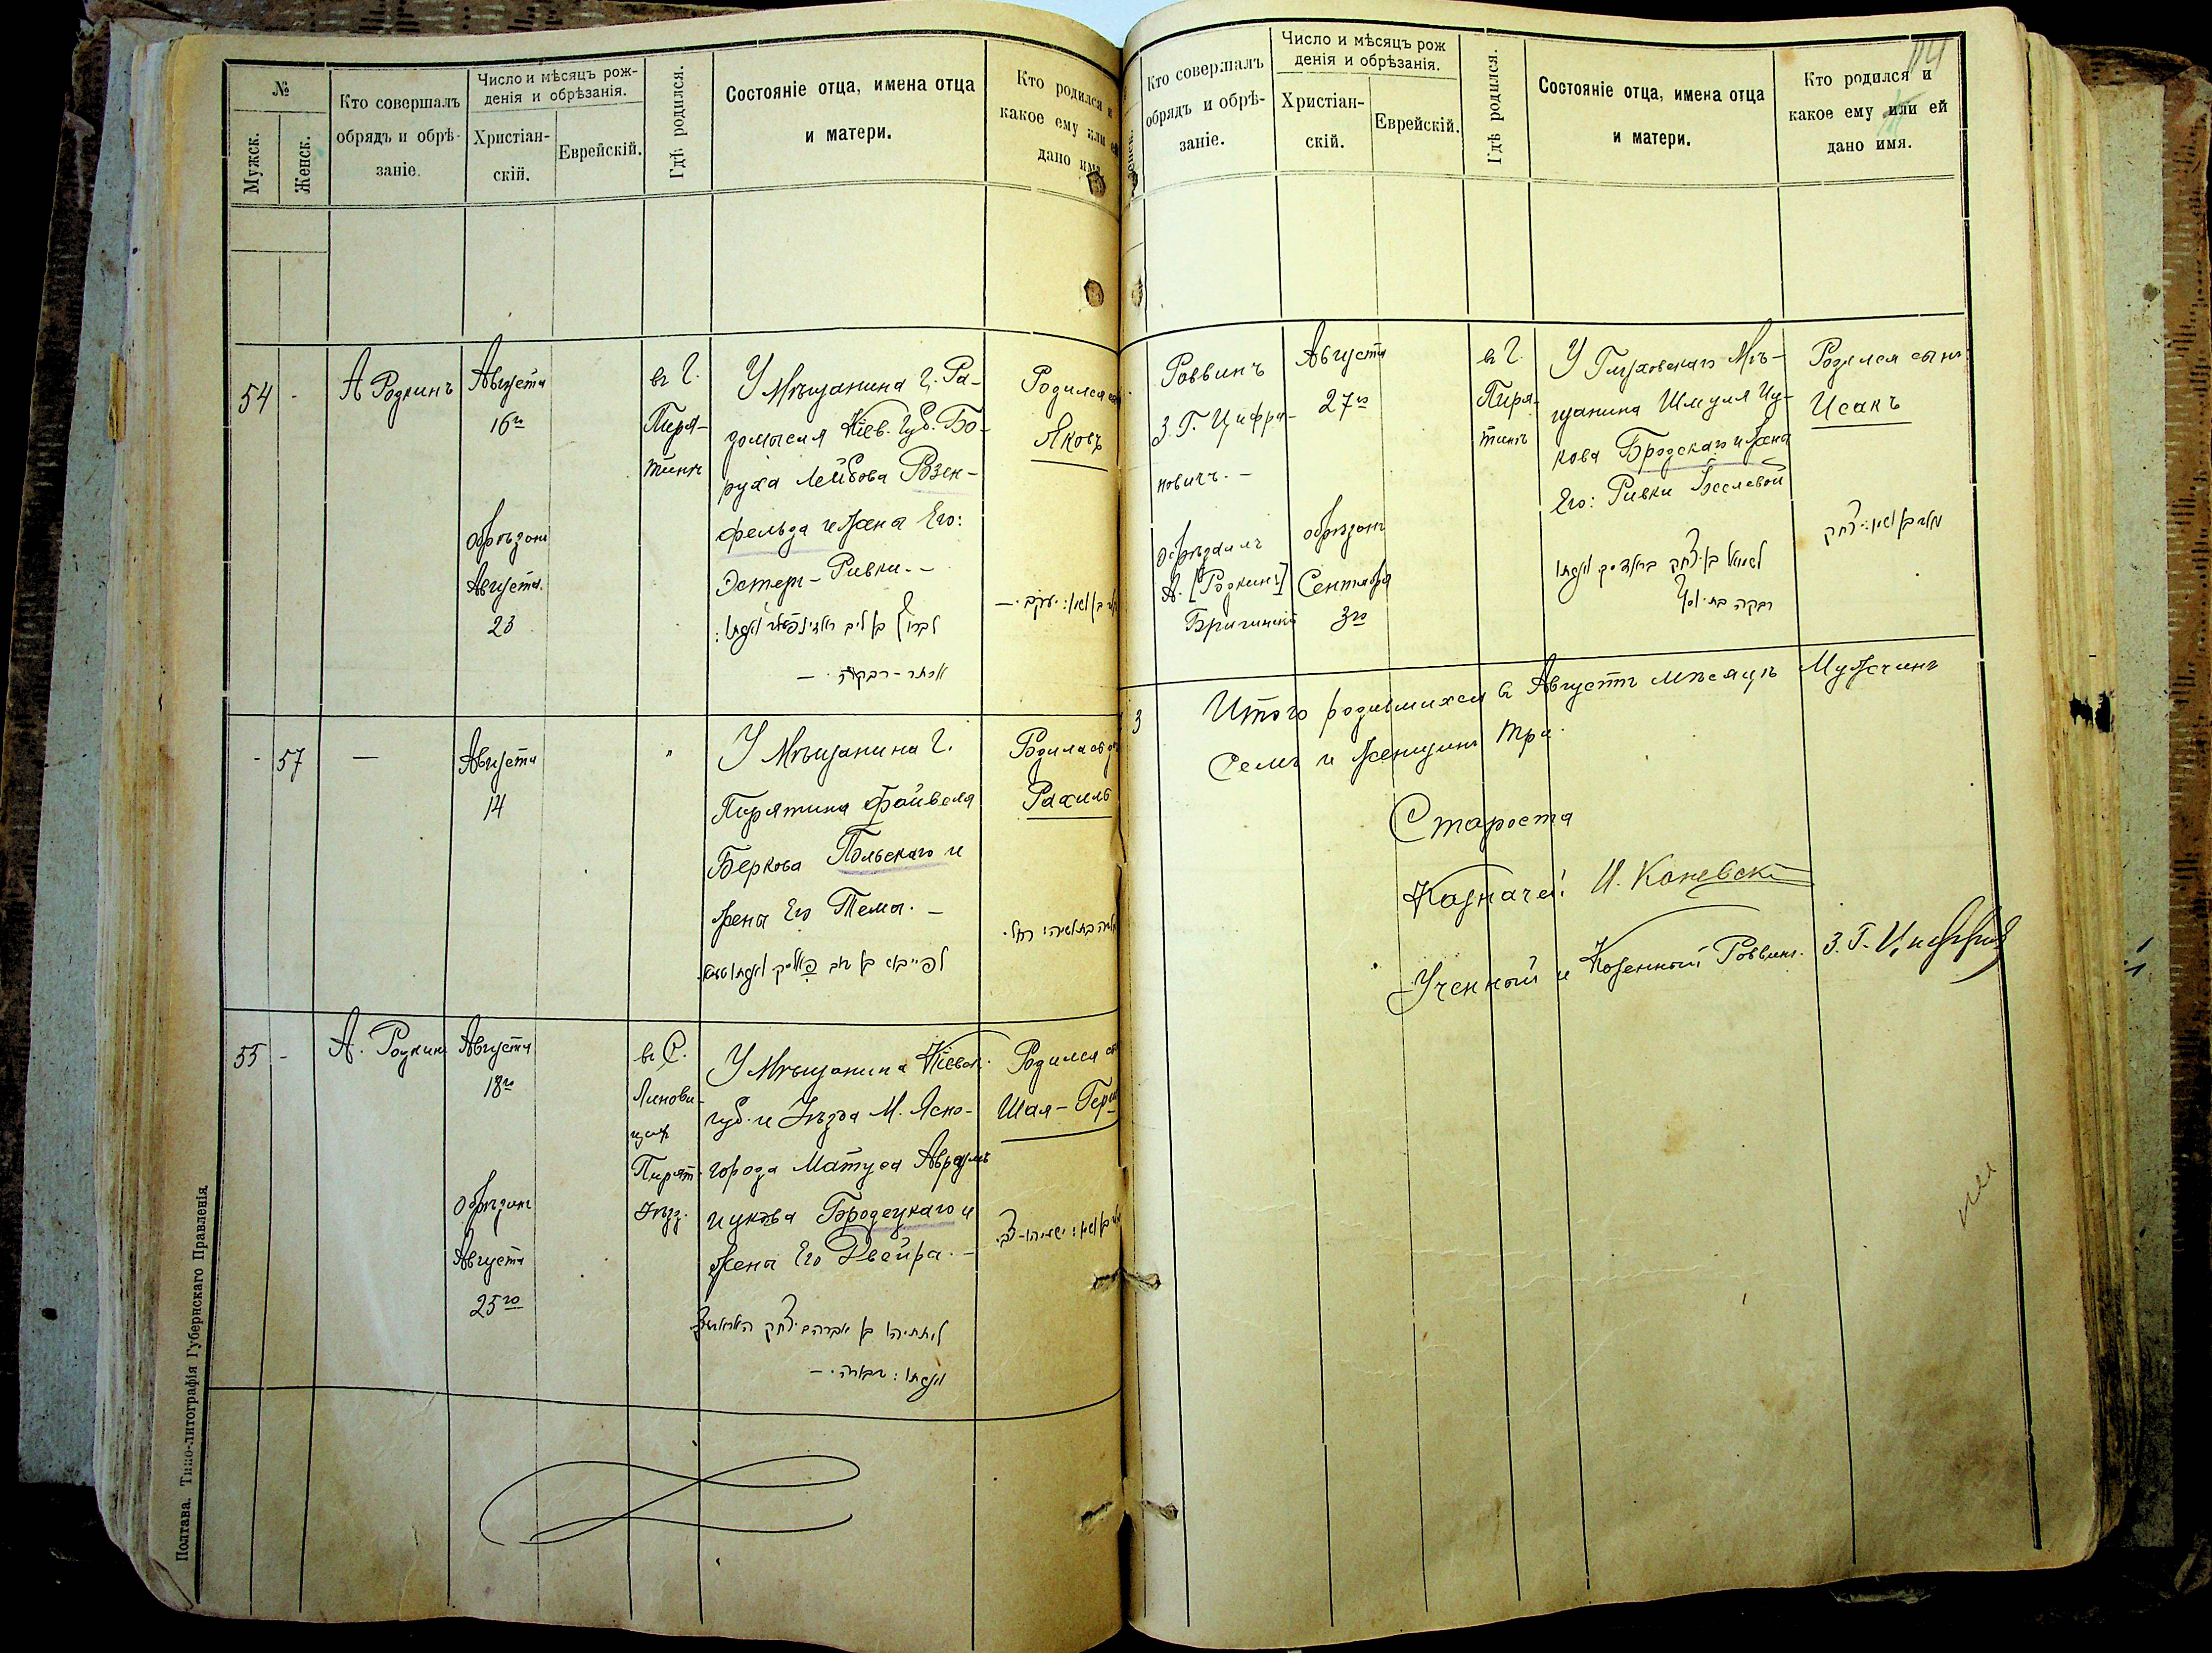 №
Мужск.
Женск.
Кто совершалъ
обрядъ и обрѣ-
заніе.
Число и мѣсяцъ рож-
денія и обрѣзанія.
Христіан-
скій.
Еврейскій.
Гдѣ родился.
Состояніе отца, имена отца
и матери.
Кто родился и
какое ему или ей
дано имя.
54
-
А Родкинъ
Августа
16го
обрѣзанъ
Августа
23
въ Г.
Пиря-
тинѣ
У Мѣщанина г. Ра-
домысля Кіев. Губ. Бо-
руха Лейбова Розен-
фельда и жены Его:
Эстеръ-Ривки. -
לברוך בן ליב ראזינפעלד ואשתו:
אסתר-רבקה. -
Родился
Яковъ
- 57
—
Августа
14
"
У Мѣщанина г.
Пирятина Файвеля
Беркова Польскаго и
жены Его Темы. -
Родилась
Рахиль
55 -
А. Родкинъ
Августа
18го
обрѣзанъ
Августа
25го
въ С.
Линови-
цахъ
Пирят.
Уѣзд.
У Мѣщанина Кіевск.
губ. и Уѣзда М. Ясно-
города Матуса Аврамъ
Ицкова Бродецкаго и
жены Его Двейра. -
Родился
Шая-
Полтава. Типо-литографія Губернскаго Правленія.
114
Кто совершалъ
обрядъ и обрѣ-
заніе.
Число и мѣсяцъ рож
денія и обрѣзанія.
Христіан-
скій.
Еврейскій.
Гдѣ родился.
Состояніе отца, имена отца
и матери.
Кто родился и
какое ему или ей
дано имя.
Раввинъ
З. Г. Цифри-
новичъ. -
обрѣзалъ
А. [Родкинъ]
Августа
27го
обрѣзанъ
Сентября
3го
въ Г.
Пиря-
тинѣ
У Глуховскаго Мѣ-
щанина Шмуля Иц-
кова Бродскаго и жены
Его: Ривки
לשמואל בן יצחק בראדסקי ואשתו
רבקה בת יוסף
Родился сынъ
Исакъ
3
Итого родившихся въ Августѣ мѣсяцѣ Мужчинъ
Семь и женщинъ три.
Староста
Казначей И. Каневскій
Ученый и Казенный Раввинъ. З. Г.